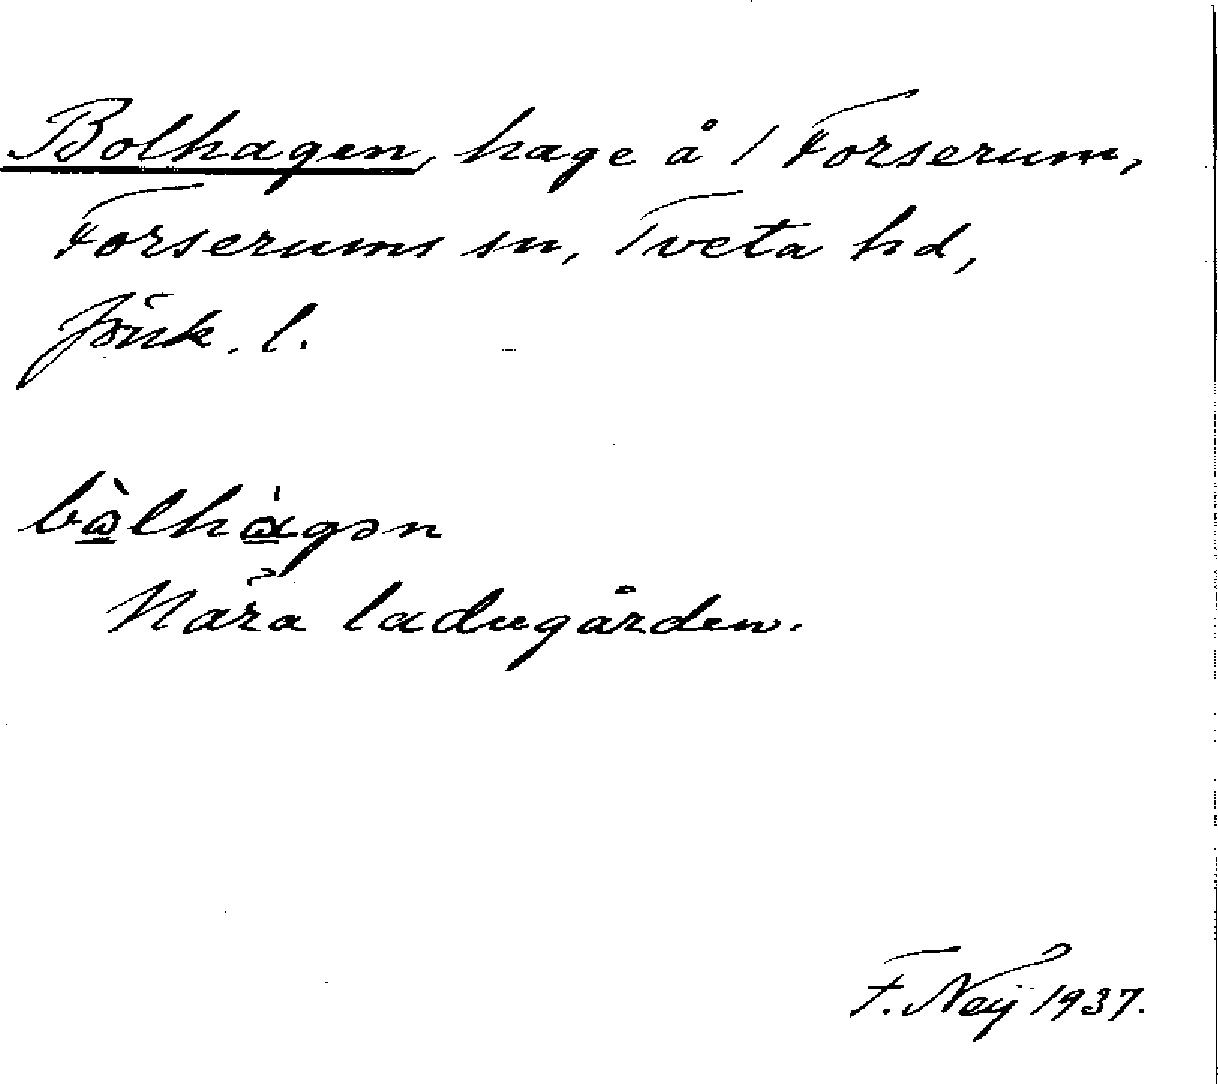 Bolhagen, hage å 1 Forserum,
Forserums sn, Tveta hd,
Jönk. l.
bò̲lhà̲gən
Nära ladugården.
F. Neÿ 1937.